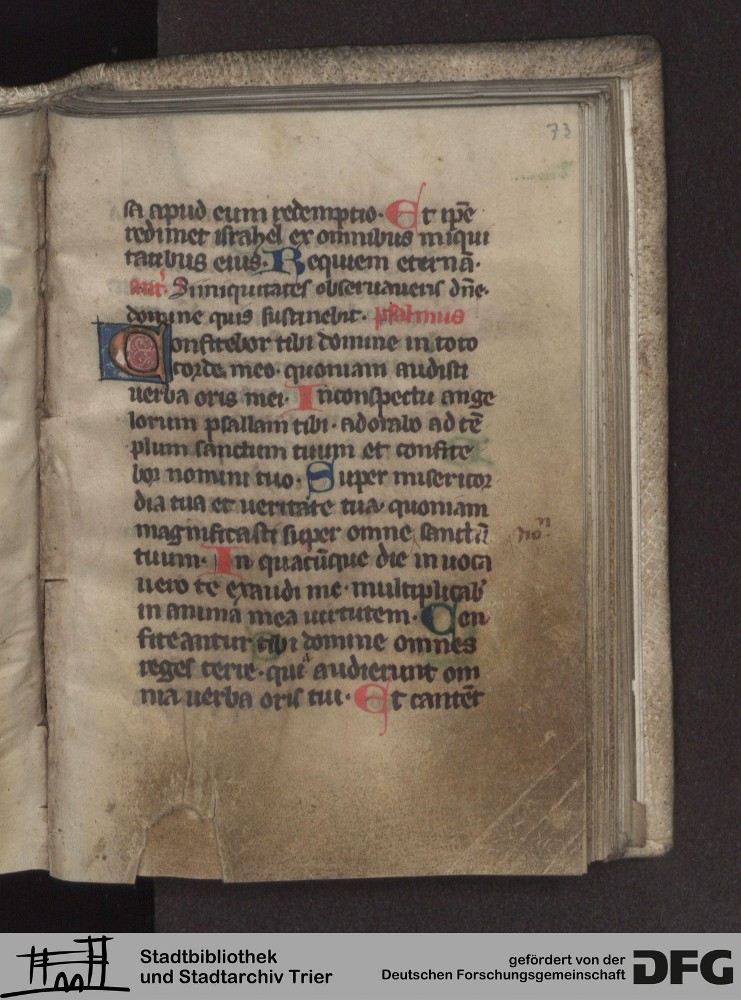 73
sa apud eum redemptio. Et ip̄e
redimet israhel ex omnibus iniqui
tatibus eius. Requiem eternā.
ant. Si iniquitates obseruaueris dn̄e.
domine quis sustinebit. psalmus
Confitebor tibi domine in toto
corde meo. quoniam audisti
uerba oris mei. In conspectu ange
lorum psallam tibi. adorabo ad tē
plum sanctum tuum et confite
bor nomini tuo. Super misericor
dia tua et ueritate tua. quoniam
magnificasti super omne sanctū
tuum. In quacūque die inuoca
uero te exaudi me. multiplicab'
in anima mea uirtutem. Con
fiteantur tibi domine omnes
reges terre. quia audierunt om
nia uerba oris tui. Et cantēt
Stadtbibliothek
und Stadtarchiv Trier
gefördert von der
Deutschen Forschungsgemeinschaft
DFG